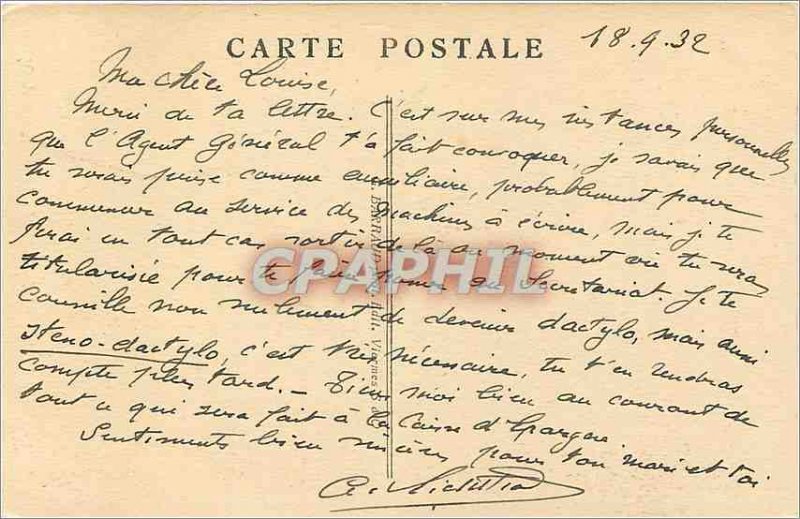 CARTE POSTALE
18.9.32
Ma chère Louise,
Merci de ta lettre. C'est sur mes instances personnelles
que l'Agent Général t'a fait convoquer, je savais que
tu serais prise comme auxiliaire, probablement pour
commencer au service des machines à écrire, mais je te
ferai en tout cas sortir de là au moment où tu seras
titularisée pour te faire au Secrétariat. Je te
conseille non seulement de devenir dactylo, mais aussi
sténo-dactylo, c'est très nécessaire, tu t'en rendras
compte plus tard. — Tiens moi bien au courant de
tout ce qui sera fait à la Caisse d'Epargne
Sentiments bien sincères pour ton mari et toi
CPAPHIL